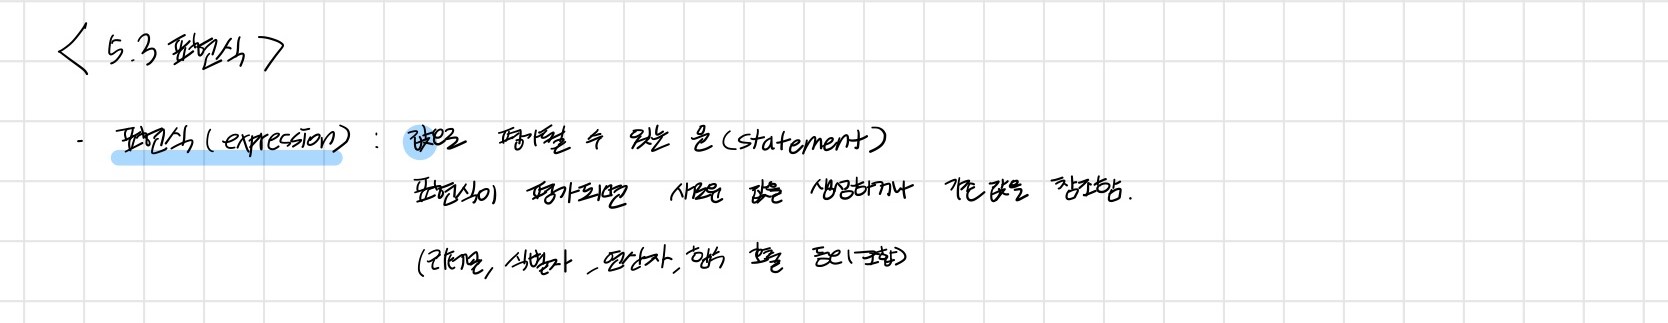 < 5.3 표현식 >
- 표현식 (expression) : 값으로 평가될 수 있는 문(statement)
표현식이 평가되면 새로운 값을 생성하거나 기존 값을 참조함.
(리터럴, 식별자, 연산자, 함수 호출 등의 조합)